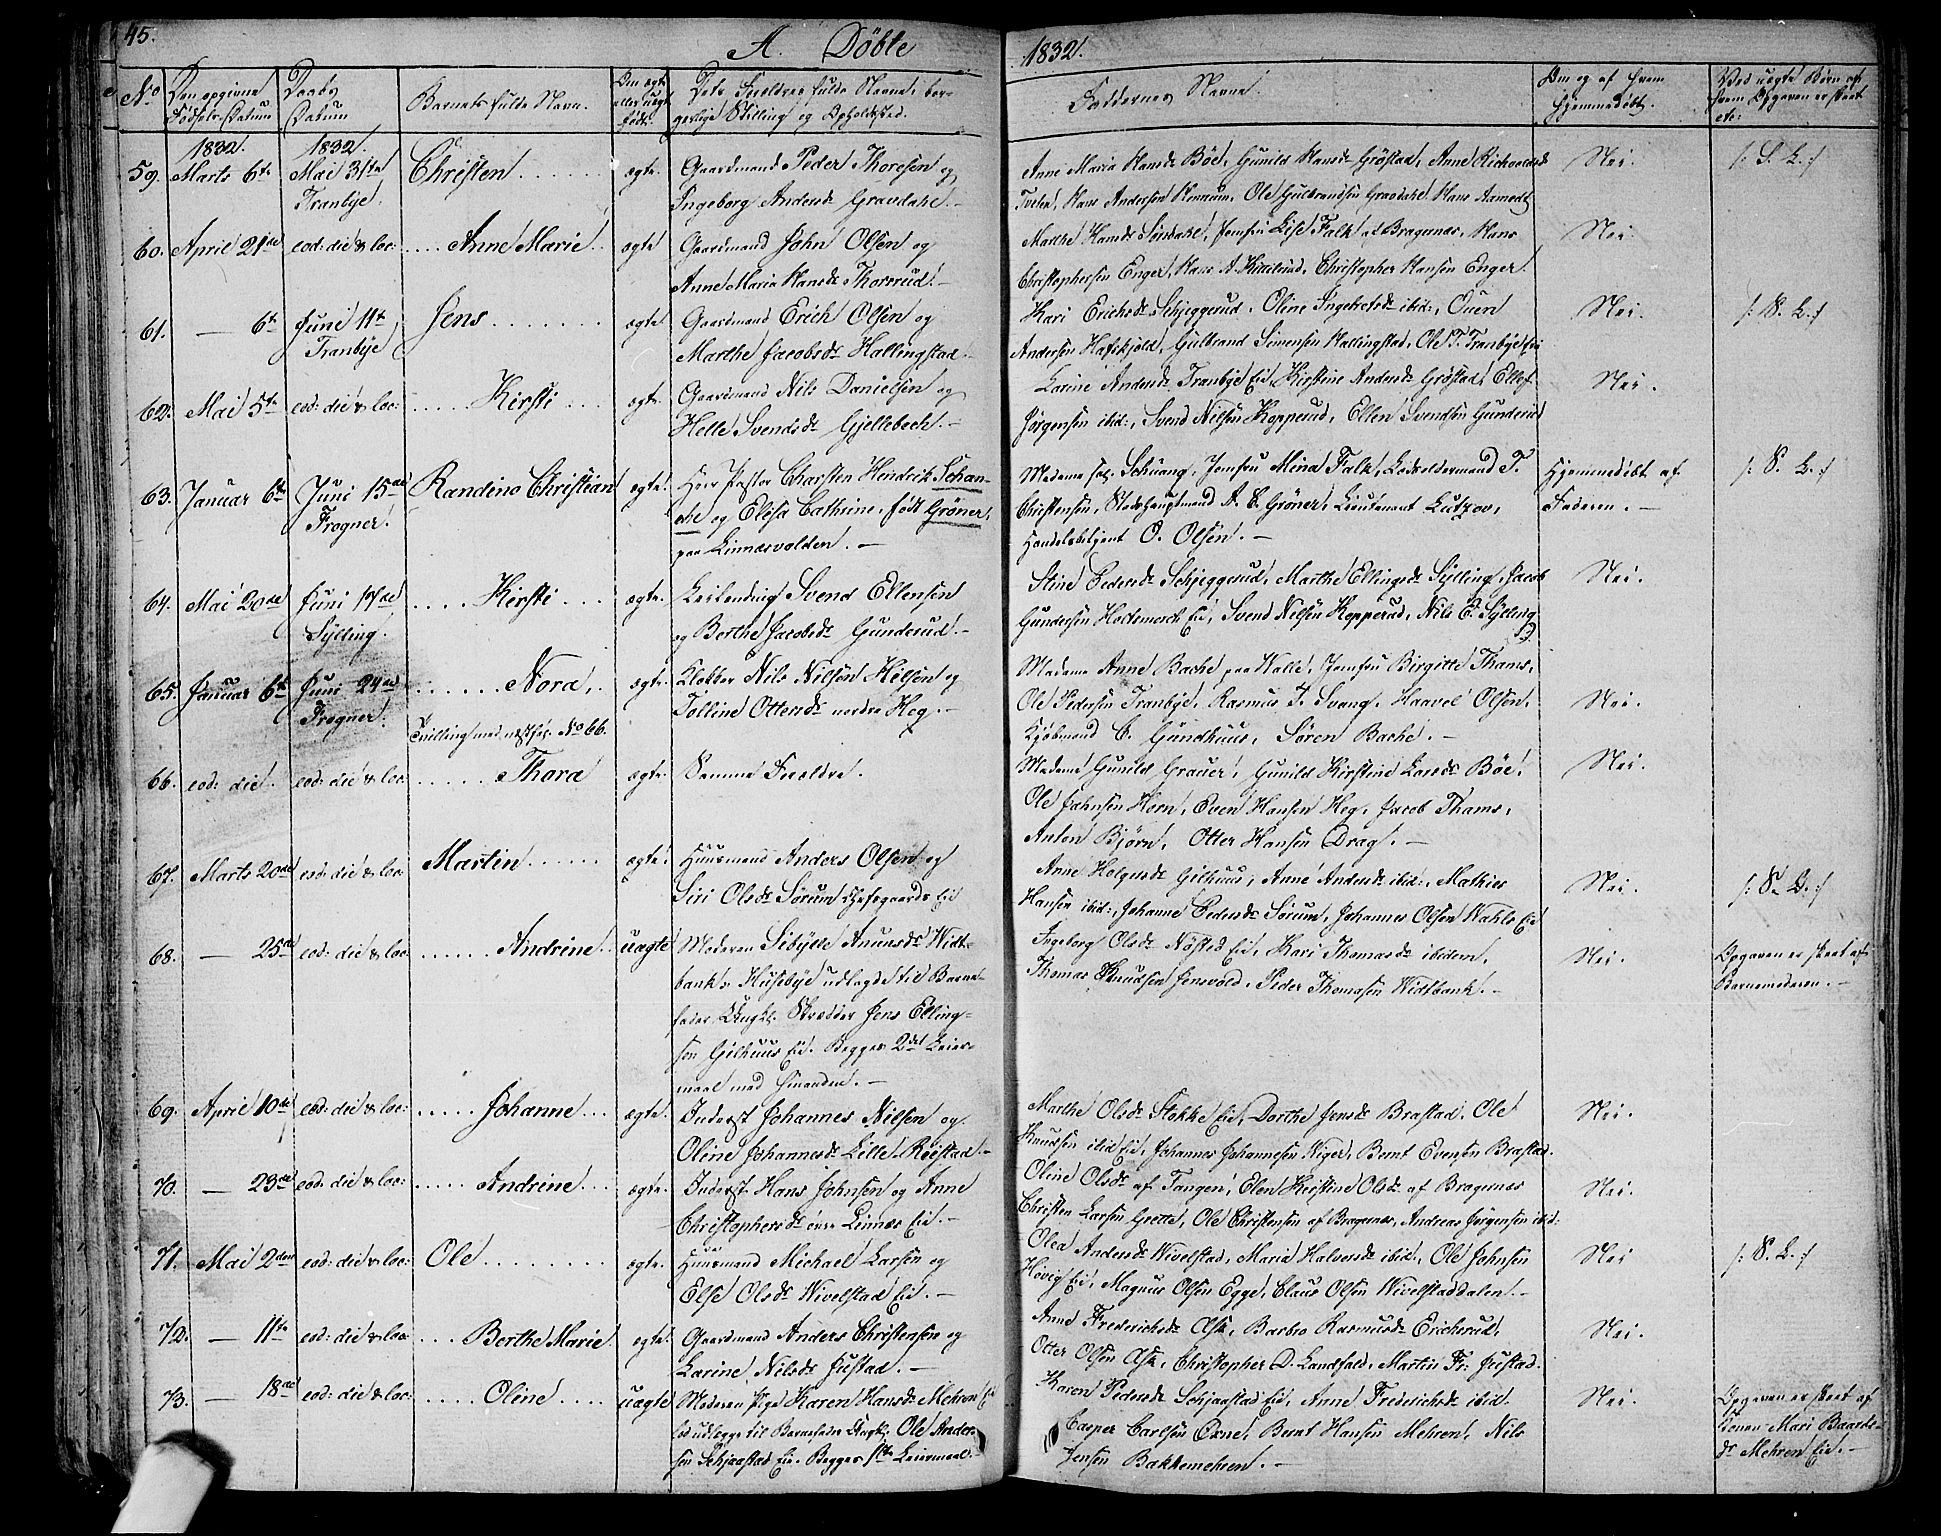 45.
A. Døbte
1832.
No
Den opgivne Fødsels-Datum
Daabs Datum
Barnets fulde Navn.
Om ægte eller uægte født.
Dets Foreldres fulde Navne, borgerlige Stilling og Opholdsted.
Faddernes Navne.
Om og af hvem hjemmedøbt.
Ved uægte Børn af hvem Opgaven er skeet etc:
1832.
1832.
59. Marts 6te
Mai 31te
Tranbye.
Christen
ægte.
Gaardmand Peder Thoresen og
Ingeborg Andersdr Gravdahl.
Anne Maria Hansdr Böe, Gunild Hansdr Gröstad, Anne Richardsdr
Tveten, Hans Andersen Kinnum, Ole Gulbrandsen Gravdahl, Hans Aamodt
Nei.
/: S. L. :/
60. April 21de
eod: die & loc:
Anne Marie
ægte
Gaardmand John Olsen og
Anne Maria Hansdr Thorsrud.
Marthe Hansdr Sörsdahl, Jomfru Lise Falk af Bragernæs, Hans
Christophersen Enger, Hans A. Kittilrud, Christopher Hansen Enger.
Nei.
61. — 6te
Juni 11te
Tranbye
Jens
ægte.
Gaardmand Erich Olsen og
Marthe Jacobsdr Hallingstad.
Kari Erichsdr Schjeggerud, Oline Ingebretsdr ibid:, Ouen
Andersen Hafskjold, Gulbrand Simensen Hallingstad, Ole T. Tranbye Eie
Nei.
/: S. L. :/
62. Mai 5te
eod: die & loc:
Kirsti
ægte.
Gaardmand Nils Danielsen og
Helle Svendsdr Gjellebech.
Karine Andersdr Tranbye Eie, Kirstine Andersdr Gröstad, Ellef
Jörgensen ibid:, Svend Nilsen Kopperud, Ellen Svendsen Gunderud
Nei.
63. Januar 6te
Juni 15de
Frogner.
Randino Christian
ægte.
Herr Pastor Charsten Hendrik Schan-
che og Elisa Cathrine, født Gröner,
paa Linnesvolden.
Madame sal. Schwang, Jomfru Mina Falk, T.
Christensen, Stadshauptmand A. C. Gröner, Lieutenant Lutzov,
Handelsbetjent O. Olsen.
Hjemmedöbt af
Faderen.
/: S. L. :/
64. Mai 20de
Juni 17de
Sylling.
Kirsti
ægte.
Leilending Svend Ellensen
og Berthe Jacobsdr Gunderud.
Stine Pedersdr Schjeggerud, Marthe Ellingsdr Sylling, Jacob
Gundersen Holtemosch Eie, Svend Nilsen Kopperud, Nils E. Sylling
Nei.
65. Januar 6te
Juni 24de
Frogner.
Nora,
Tvilling med næstføl. No 66.
ægte.
Klokker Nils Nilsen Hilsen og
Tolline Ottersdr nordre Heg.
Madame Anne Bache paa Walle, Jomfru Birgitte Thams,
Ole Pedersen Tranbye, Rasmus T. Svang, Haavel Olsen,
Kjøbmand C. Gundhuus, Sören Bache.
Nei.
66. eod: die.
eod: die & loc:
Thora
ægte.
Samme Foreldre.
Madame Gunild Grauer, Gunild Kirstine Larsdr Böe,
Ole Johnsen Horn, Even Hansen Heg, Jacob Thams,
Anton Bjørn, Otter Hansen Drag.
Nei.
67. Marts 20de
eod: die & loc:
Martin
ægte.
Huusmand Anders Olsen og
Siri Olsdr Sörum Eie
Anne Helgesdr Gilhuus, Anne Andersdr ibid:, Mathies
Hansen ibid:, Johanne Pedersdr Sörum, Johannes Olsen Wahls Eie
Nei.
/: S. L. :/
68. — 25de
eod: die & loc:
Andrine
uægte
Moderen Sibylle Anunsdr Widt-
bank Husebye udlagde til Barne-
fader Ungkl. Skredder Jens Elling-
sen Gilhuus Eie. Begges 2det Leier-
maal med hinanden.
Ingeborg Olsdr Nøsted Eie, Kari Thomasdr ibidem,
Thomas Knudsen Jensvold, Peder Thomasen Widtbank.
Nei.
Opgaven er skeet af
Barnemoderen.
69. April 10de
eod: die & loc:
Johanne
ægte.
Inderst Johannes Nilsen og
Oline Johannesdr Lille Reistad.
Marthe Olsdr Stokke Eie, Dorthe Jensdr Brastad, Ole
Knudsen ibid Eie, Johannes Johannesen Niger, Bernt Evensen Brastad.
Nei.
70. — 23de
eod: die & loc:
Andrine
ægte.
Inderst Hans Johnsen og Anne
Christophersdr øvre Linnes Eie.
Oline Olsdr af Tangen, Elen Kirstine Olsdr af Bragernæs
Christen Larsen Grette, Ole Christensen af Bragernæs, Andreas Jørgensen ibid:
Nei.
71. Mai 2den
eod: die & loc:
Ole
ægte.
Huusmand Michael Larsen og
Else Olsdr Wivelstad Eie.
Olea Andersdr Wivelstad, Maria Halvorsdr ibid:, Ole Johnsen
Hovig Eie, Magnus Olsen Egge, Claus Olsen Wivelstaddalen.
Nei
/: S. L. :/
72. — 11te
eod: die & loc:
Berthe Marie
ægte.
Gaardmand Anders Christensen og
Larine Nilsdr Justad.
Anne Frederichsdr Ask, Barbro Rasmusdr Ericherud,
Otter Olsen Ask, Christopher D. Landfald, Martin Fr: Justad.
Nei.
73. — 18de
eod: die & loc:
Oline
uægte
Moderen Pige Karen Hansdr Mehren Eie
udlegge til Barnefader Ungk: Ole Ander-
sen Schjaastad Eie. Begges 1ste Leiermaal.
Karen Pedersdr Schjaastad Eie, Anne Frederichsdr ibid.
Casper Carlsen Oxne, Bernt Hansen Mehren, Nils
Jensen Bakkemehren.
Nei.
Opgaven er skeet af
Konen Mari Baards-
dr Mehren Eie.